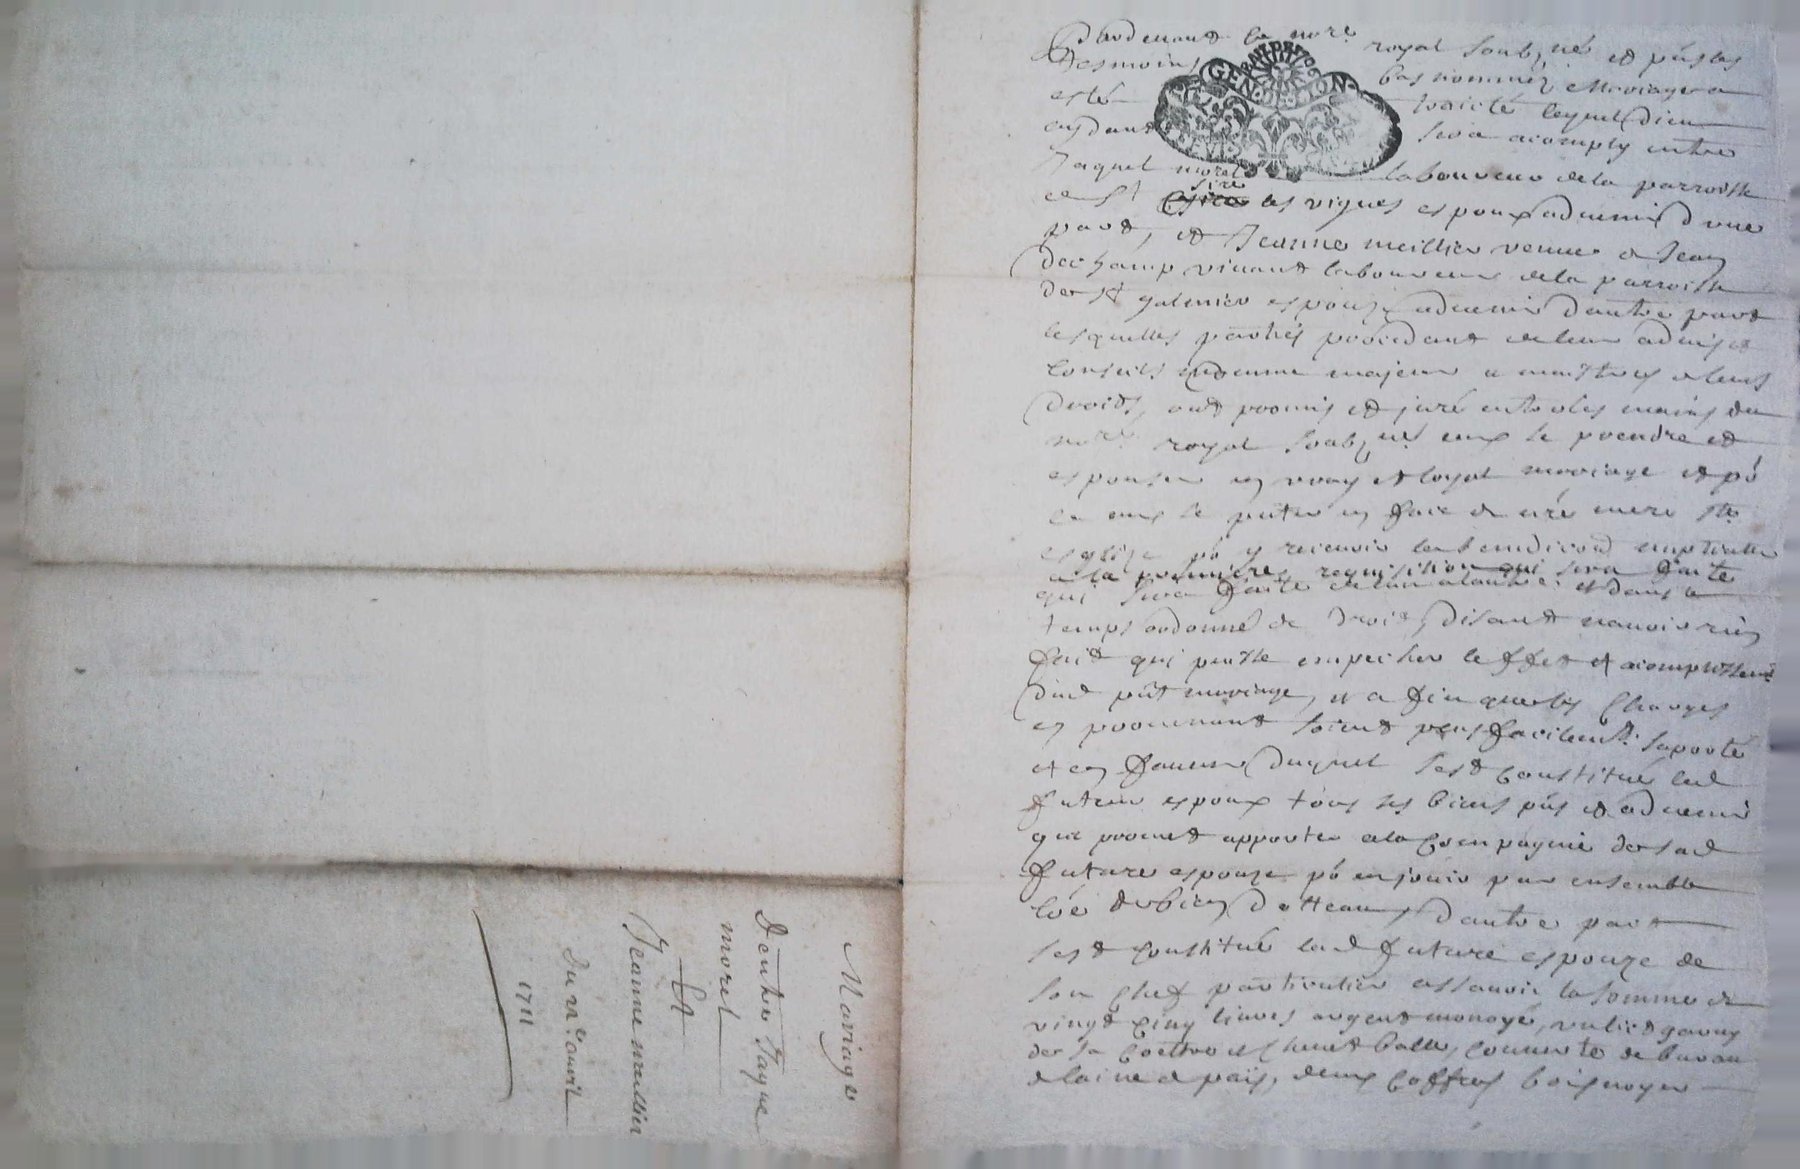 Pardevant le nore royal soubzné et p̃ñs les
tesmoins bas nommez Marriage a
esté traicté lequel Dieu
aydant sera acomply entre
Jaques morel laboureur de la parroisse
de St Sire les vignes espoux advenir d'une
part, et Jeanne meillier veuve de Jean
deschamp vivant laboureur de la parroisse
de St galmier espouze advenir d'autre part
lesquelles parties procedant de leur advis et
conseils comme majeur et maistres de leurs
droits, ont promis et juré entre les mains du
nore royal soubzné eux se prendre et
espouser en vray et loyal marriage et pr
ce eux se p̃nter en face de nre mere ste
esglize pr y recevoir la benediction nuptialle
a la premieres requisition qui sera faite
qui sera faite de l'un a l'autre et dans le
temps ordonné de droit, disant n'avoir rien
fait qui puisse empecher l'effet et acomplissemt
dud p̃nt marriage, et a fin que les charges
en provenant soient plus facilemt suporté
et en faveur duquel s'est constitué led
futeur espoux tous ses biens p̃ñs et advenir
que promet apporter a la compagnie de sad
future espouze pr en jouir par ensemble
d'autre part
s'est constitué lad future espouze de
son chef particulier assavoir la somme de
vingt cinq livres argent monoyé, un lict garny
de sa coettre et chuest balle, couverte de bureau
de laine de païs, deux coffres bois noyer
GEN. DE LION
Marriage
D'entre Jaque
morel
Et
Jeanne meillier
Du 21e avril
1711